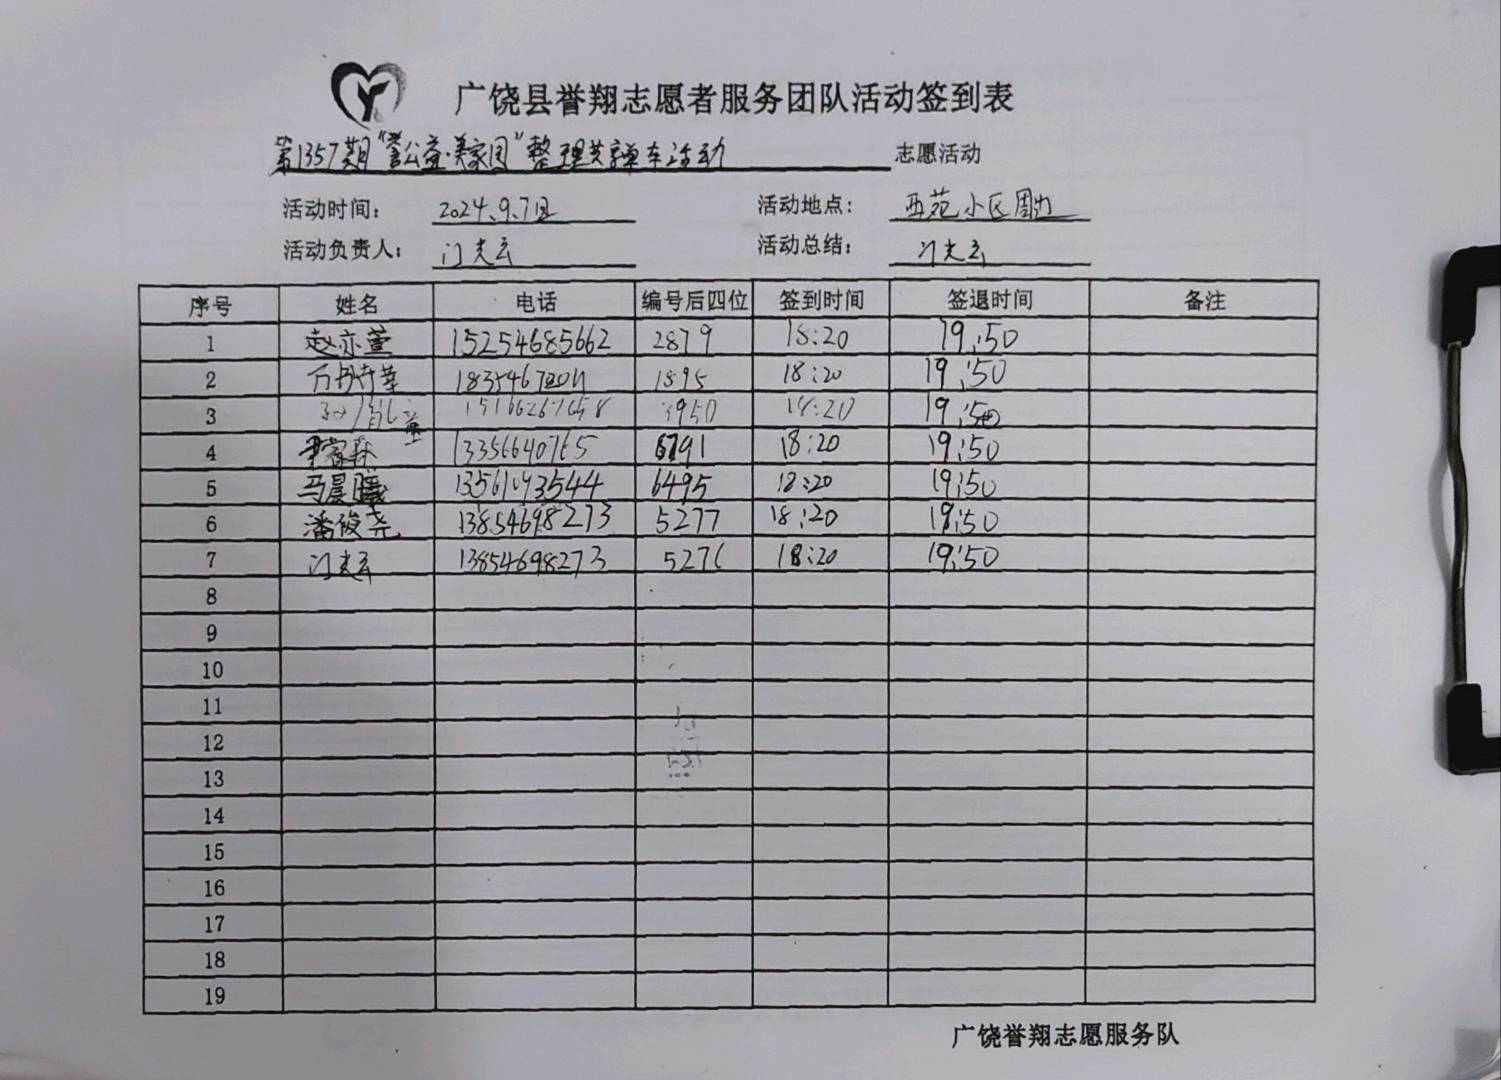 广饶县誉翔志愿者服务团队活动签到表
第1357期“誉公益·美家园”整理共享单车活动 志愿活动
活动时间： 2024.9.7日 活动地点： 西苑小区周边
活动负责人： 门光云 活动总结： 门光云
序号 姓名 电话 编号后四位 签到时间 签退时间 备注
1 赵亦萱 15254685662 2879 18:20 19:50
2 1895 18:20 19:50
3 3950 18:20 19:50
4 13356640765 6791 18:20 19:50
5 马晨曦 13561093544 6495 18:20 19:50
6 潘俊尧 13854698273 5277 18:20 19:50
7 门光云 13854698273 5276 18:20 19:50
8
9
10
11
12
13
14
15
16
17
18
19
广饶誉翔志愿服务队